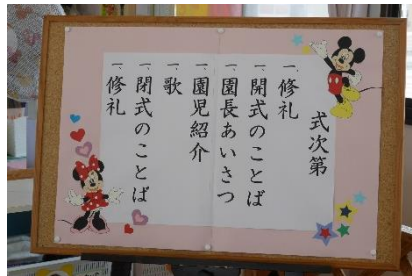 式次第
一、修礼
一、開式のことば
一、園長あいさつ
一、園児紹介
一、歌
一、閉式のことば
一、修礼